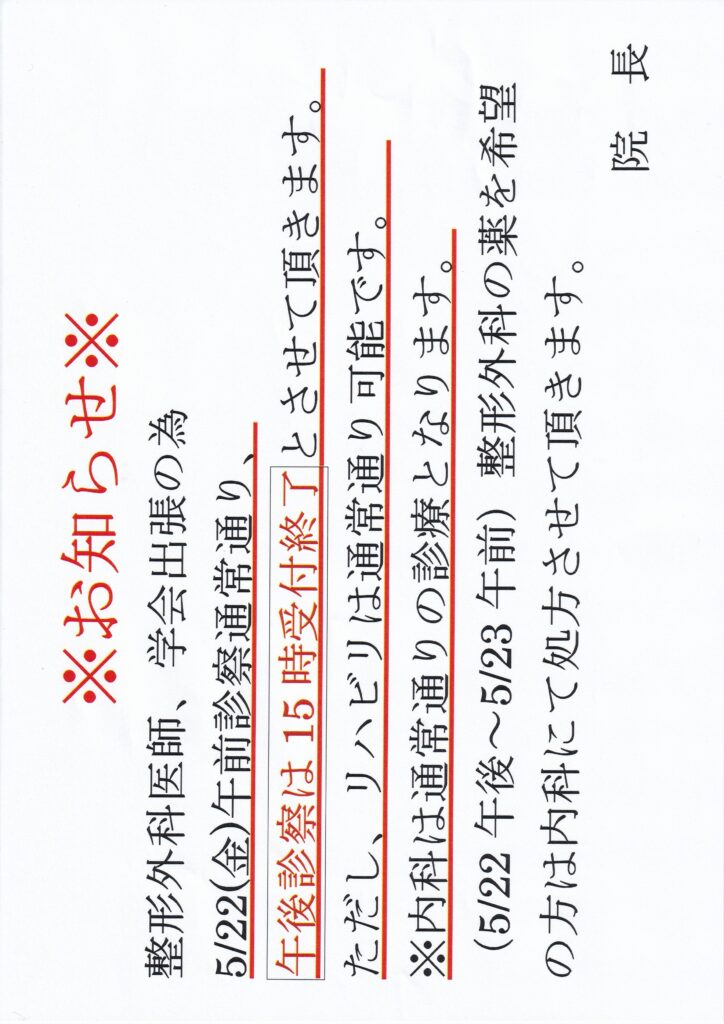 ※お知らせ※
整形外科医師、学会出張の為
5/22(金)午前診察通常通り、
午後診察は15時受付終了とさせて頂きます。
ただし、リハビリは通常通り可能です。
※内科は通常通りの診療となります。
(5/22午後～5/23午前)　整形外科の薬を希望
の方は内科にて処方させて頂きます。
院　長